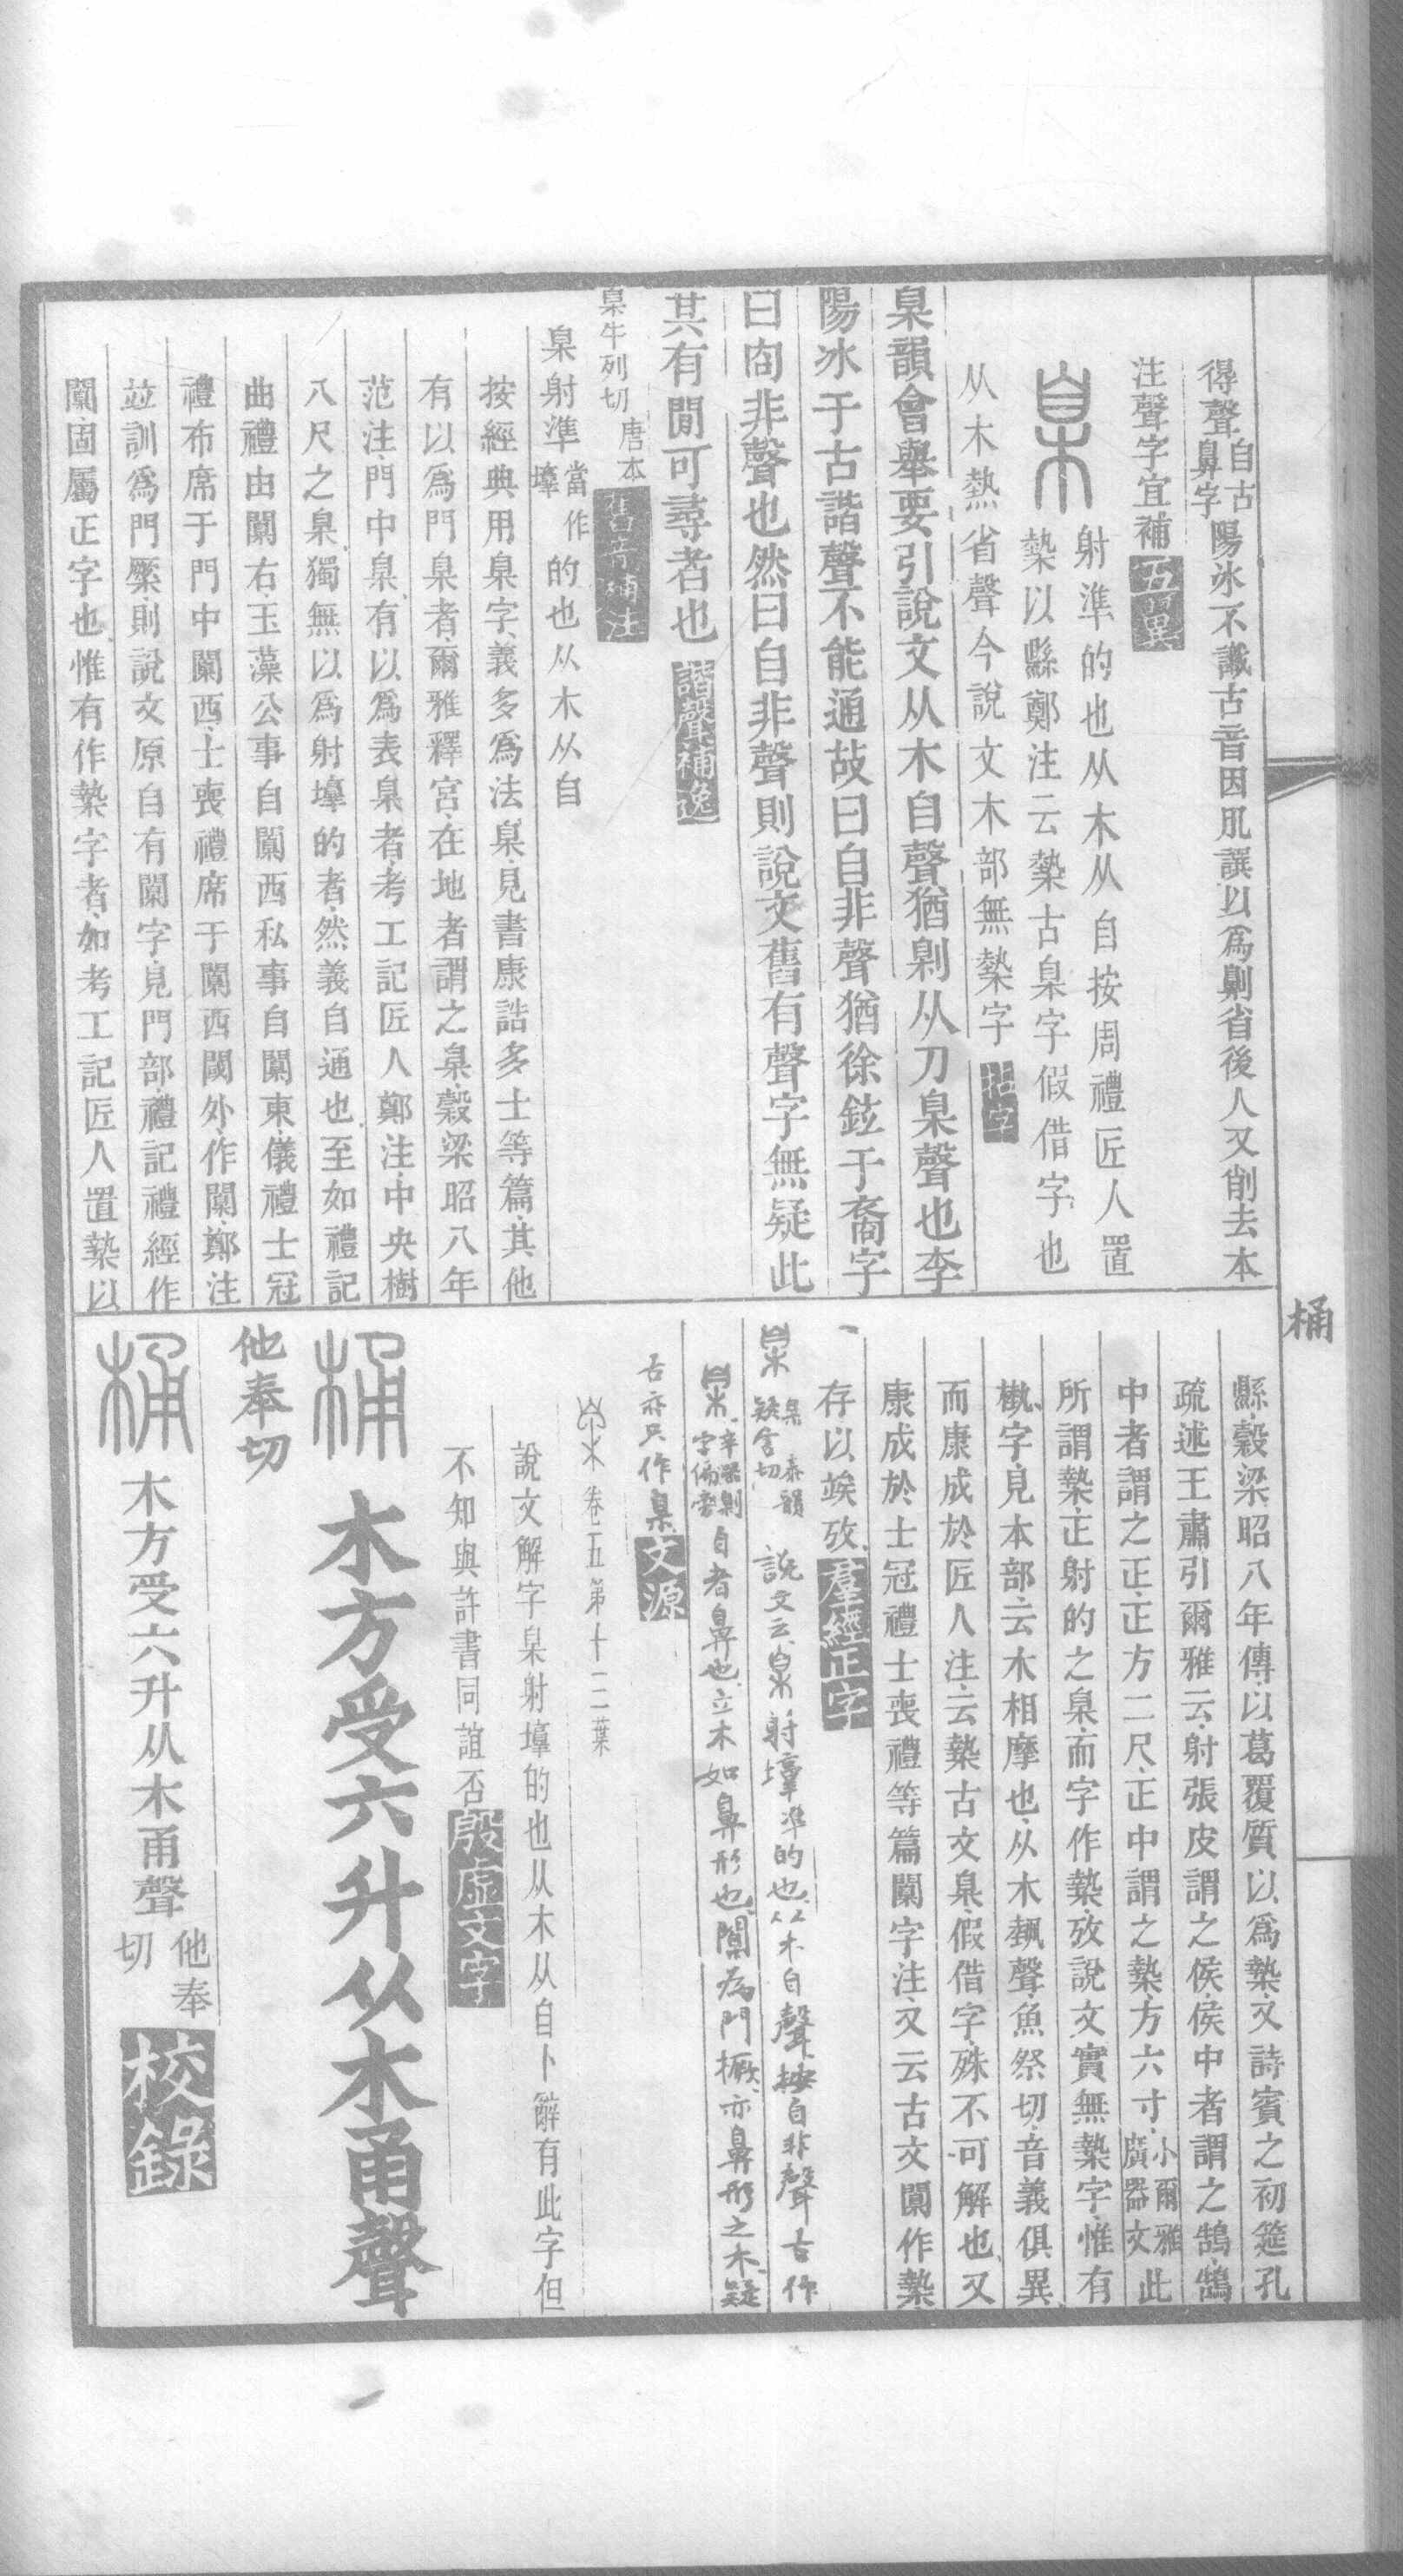 得聲自古鼻字陽冰不識古音因肊譔以爲劓省後人又削去本
注聲字宜補五翼
臬
射準的也从木从自按周禮匠人置
槷以縣鄭注云槷古臬字假借字也
从木熱省聲今說文木部無槷字
臬韻會舉要引說文从木自聲猶劓从刀臬聲也李
陽冰于古諧聲不能通故曰自非聲猶徐鉉于裔字
曰㕯非聲也然曰自非聲則說文舊有聲字無疑此
其有閒可尋者也諧聲補逸
臬牛列切唐本舊音補注
臬射準當作壔的也从木从自
按經典用臬字義多爲法臬見書康誥多士等篇其他
有以爲門臬者爾雅釋宮在地者謂之臬穀梁昭八年
范注門中臬有以爲表臬者考工記匠人鄭注中央樹
八尺之臬獨無以爲射壔的者然義自通也至如禮記
曲禮由闑右玉藻公事自闑西私事自闑東儀禮士冠
禮布席于門中闑西士喪禮席于闑西閾外作闑鄭注
竝訓爲門橜則說文原自有闑字見門部禮記禮經作
闑固屬正字也惟有作槷字者如考工記匠人置槷以
桶
縣穀梁昭八年傳以葛覆質以爲槷又詩賓之初筵孔
疏述王肅引爾雅云射張皮謂之侯侯中者謂之鵠鵠
中者謂之正正方二尺正中謂之槷方六寸小爾雅廣器文此
所謂槷正射的之臬而字作槷攷說文實無槷字惟有
槸字見本部云木相摩也从木埶聲魚祭切音義俱異
而康成於匠人注云槷古文臬假借字殊不可解也又
康成於士冠禮士喪禮等篇闑字注又云古文闑作槷
存以竢攷羣經正字
臬臬泰韻說文云臬射壔準的也从木自聲按自非聲古作
臬自者鼻也立木如鼻形也闑爲門橛亦鼻形之木疑
古亦只作臬文源
卷五第十二葉
說文解字臬射壔的也从木从自卜辭有此字但
不知與許書同誼否殷虛文字
桶木方受六升从木甬聲
他奉切
桶木方受六升从木甬聲他奉切校錄